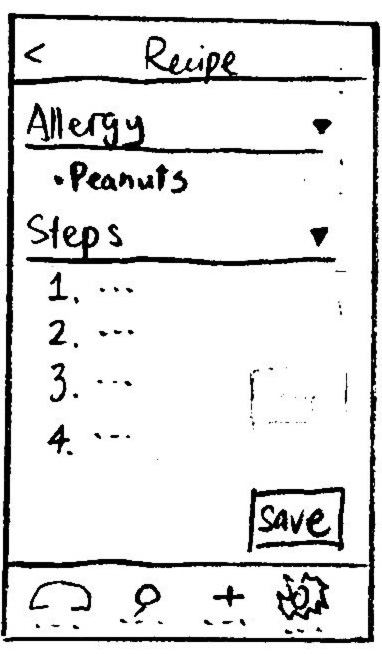 < Recipe
Allergy ▼
• Peanuts
Steps ▼
1. ...
2. ...
3. ...
4. ...
Save
+